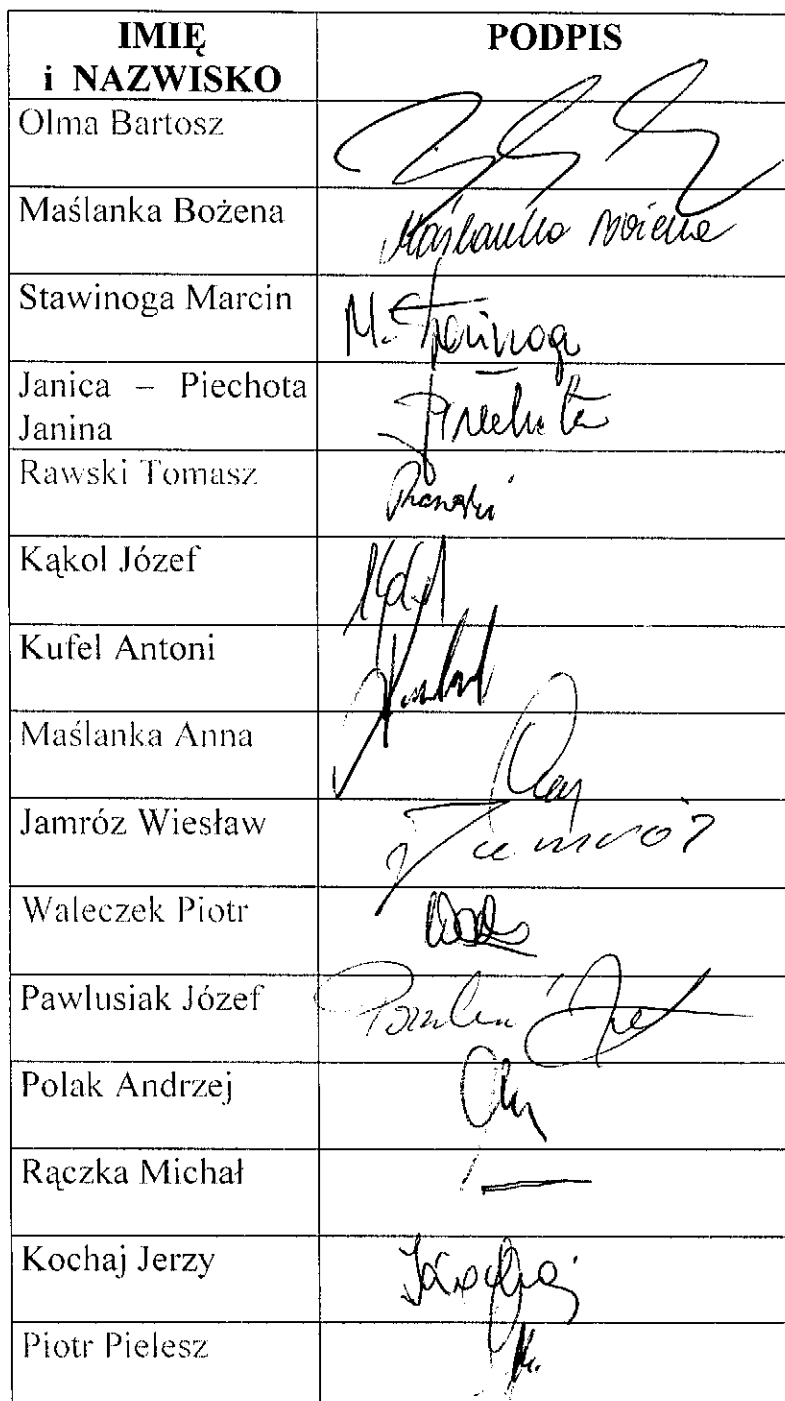 IMIĘ
i NAZWISKO
PODPIS
Olma Bartosz
Maślanka Bożena
Maślanka Bożena
Stawinoga Marcin
M. Stawinoga
Janica – Piechota
Janina
Piechota
Rawski Tomasz
Rawski
Kąkol Józef
Kufel Antoni
Maślanka Anna
Jamróz Wiesław
Jamróz
Waleczek Piotr
Pawlusiak Józef
Polak Andrzej
Rączka Michał
Kochaj Jerzy
Piotr Pielesz